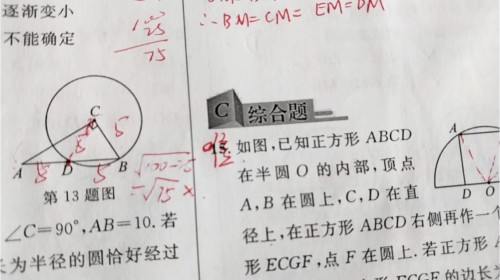 逐渐变小
不能确定
100
25
75
∴BM=CM= EM=DM
C
5
5
A
5
D
5
B
√100-25
=√75
第 13 题图
∠C=90°,AB=10.若
长为半径的圆恰好经过
C 综合题
15. 如图,已知正方形 ABCD
在半圆 O 的内部,顶点
A,B 在圆上,C,D 在直
径上,在正方形 ABCD 右侧再作一个
形 ECGF,点 F 在圆上.若正方形 A
形 ECGF 的边长
A
D
O